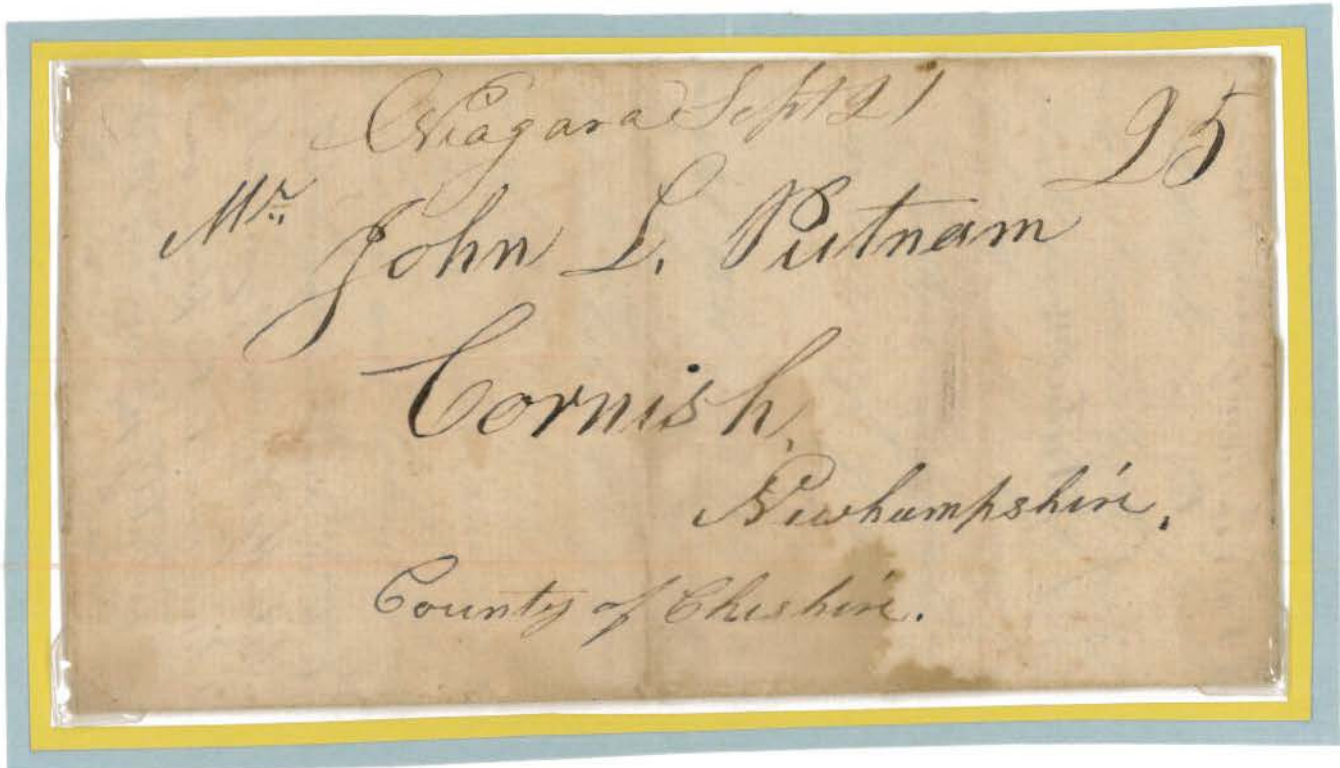 Niagara Sept 21 25
Mr. John L. Putnam
Cornish,
Newhampshire.
County of Cheshire.